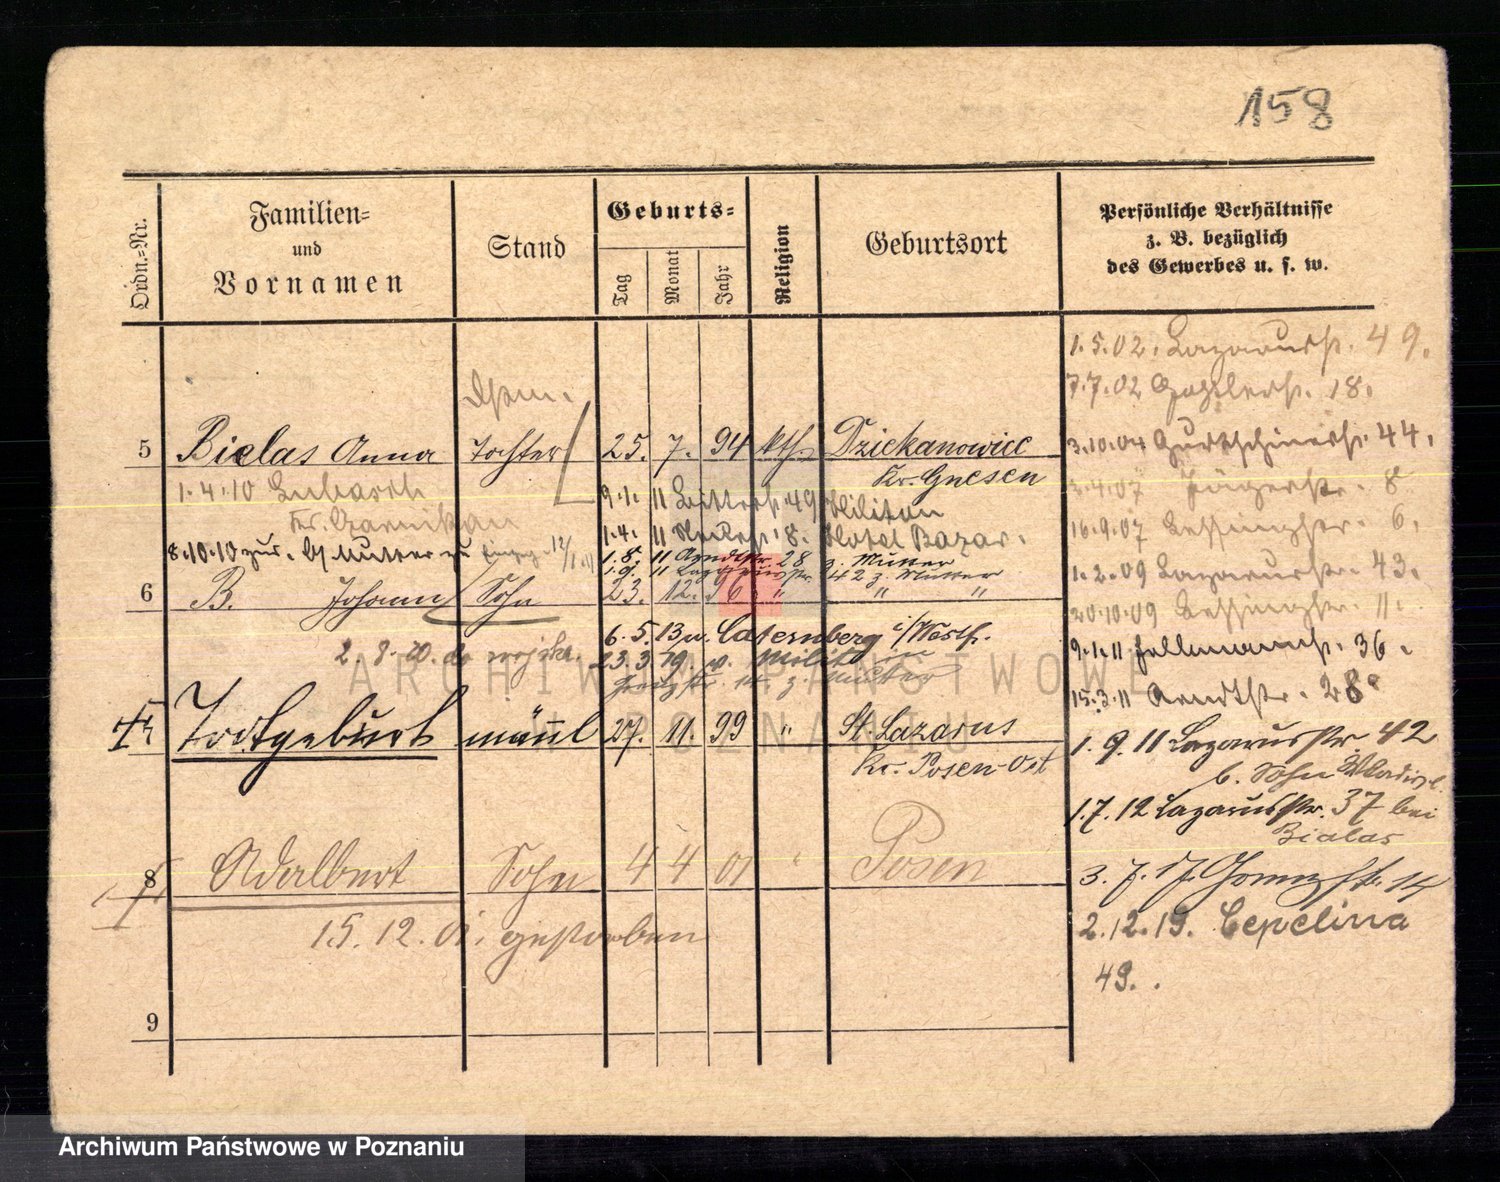 158
Ordn.=Nr.
Familien=
und
Vornamen
Stand
Geburts=
Tag
Monat
Jahr
Religion
Geburtsort
Persönliche Verhältnisse
z. B. bezüglich
des Gewerbes u. s. w.
1.5.02. Lazarusstr. 49.
7.7.02 18.
3.10.04 44.
5 Bielas Anna Tochter 25. 7. 94 kth. Dziekanowice
Kr. Gnesen
1.4.10 Lubasch
9.1.11 49 Militan
.4.07 Jägerstr. 8
16.9.07 Lessingstr. 6.
1.4.11 8. Hotel Bazar.
8.10.10 zur. b/ Mutter zu
1.8.11 Arndtstr. 28 z. Mutter
1.9.11 Lazarusstr. 42 z. Mutter
1.2.09 Lazarusstr. 43.
6 B. Johann Sohn 23. 12. 96 " " "
20.10.09 Lessingstr. 11.
6.5.13 n. Caternberg i/Westf.
2.8.20. do wojska.
23.3.19. v. Militär in
14. z. Mutter
9.1.11 36.
15.3.11 Arndtstr. 28
Todtgeburt männl 27. 11. 99 " St. Lazarus
Kr. Posen-Ost
1.9.11 Lazarusstr. 42
b. Sohn
1.7.12 Lazarusstr. 37 bei
Bialas
8 Adalbert Sohn 4 4 01 " Posen
3.7.17. 14
15.12.01. gestorben
2.12.19. Cepelina
49.
9
ARCHIWUM PAŃSTWOWE
W POZNANIU
Archiwum Państwowe w Poznaniu